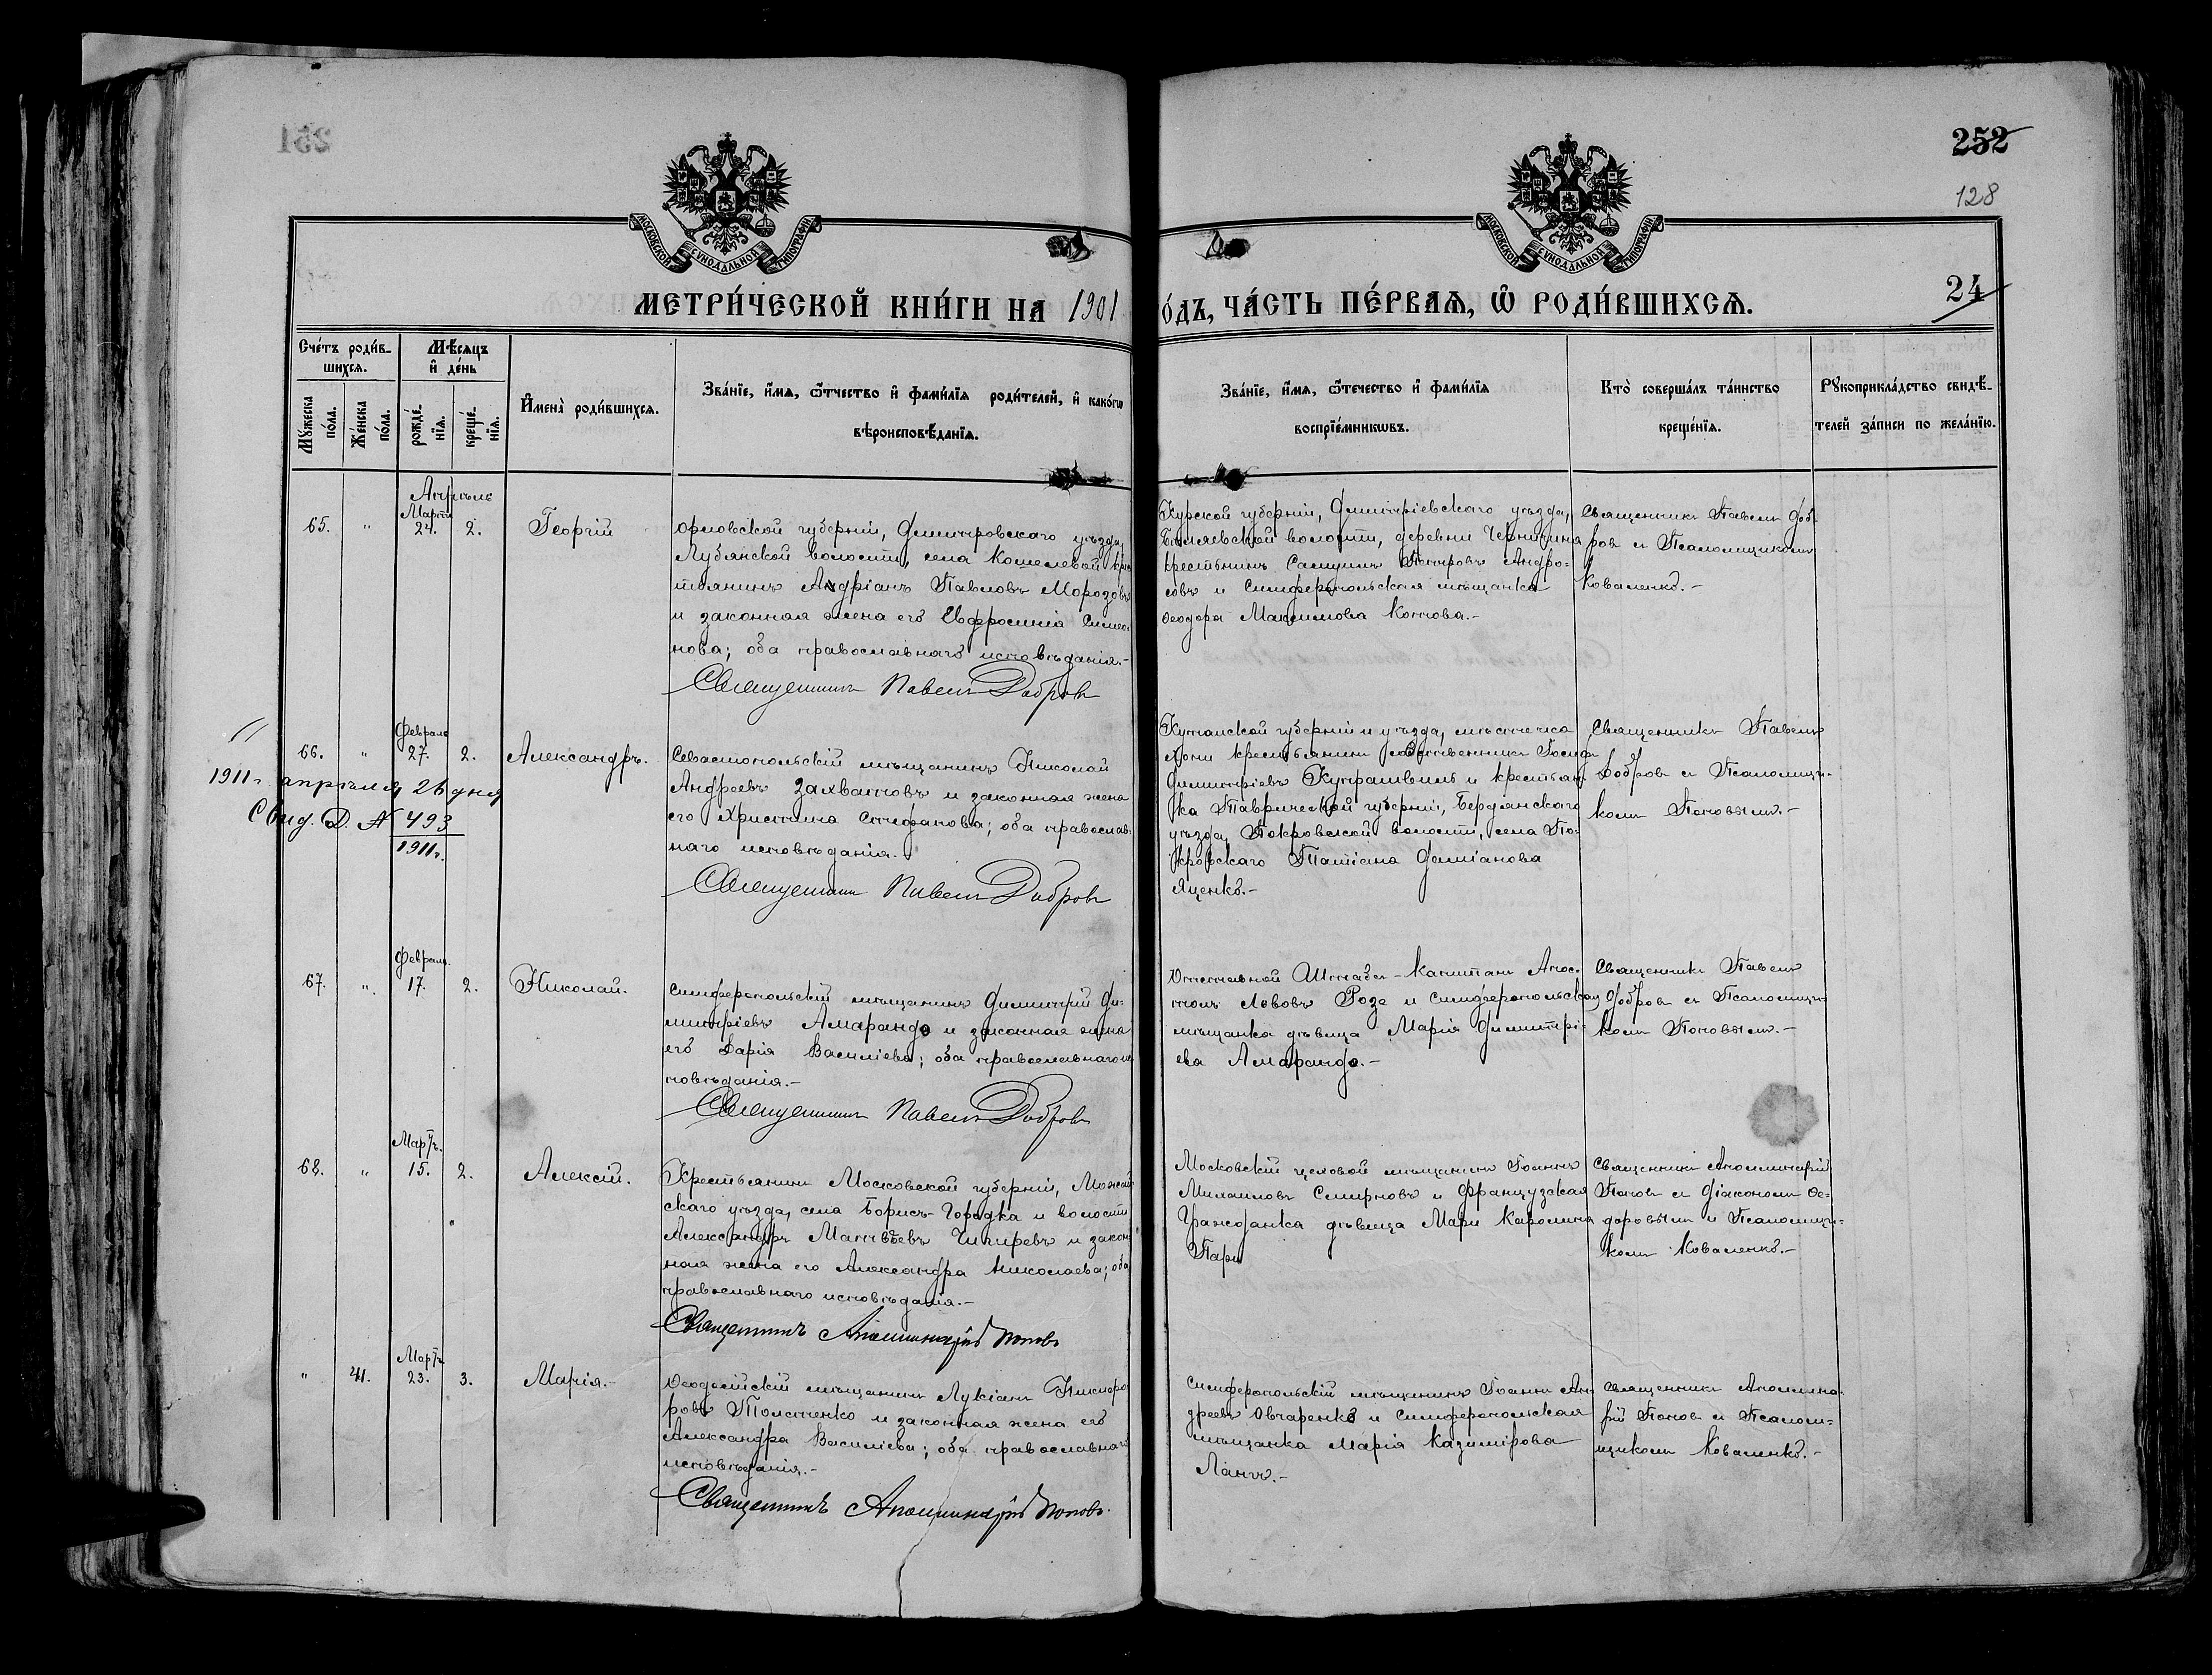 251
252
128
24
МОСКОВСКОЙ СѴНОДАЛЬНОЙ ТИПОГРАФІИ
МОСКОВСКОЙ СѴНОДАЛЬНОЙ ТИПОГРАФІИ
МЕТРИ́ЧЕСКОЙ КНИ́ГИ НА 1901
О́ДЪ, ЧА́СТЬ ПЕ́РВАѦ, Ѡ РОДИ́ВШИХСѦ.
Сче́тъ роди́в-
шихсѧ.
Мꙋ́жеска по́ла.
Же́нска по́ла.
Мѣ́сѧцъ
и҆ де́нь
рожде́-
нїѧ.
креще́-
нїѧ.
И҆мена̀ роди́вшихсѧ.
Зва́нїе, и҆́мѧ, ѻ҆́тчество и҆ фами́лїѧ роди́телей, и҆ како́гѡ
вѣроисповѣ́данїѧ.
Зва́нїе, и҆́мѧ, ѻ҆те́чество и҆ фами́лїѧ
воспрїе́мникѡвъ.
Кто̀ соверша́лъ та́инство
креще́нїѧ.
Рꙋкоприкла́дство свидѣ́-
телей за́писи по жела́нїю.
Апрѣль
Мартъ
65. " 24. 2. Георгій
Орловской губерніи, Димитровскаго уѣзда,
Лубянской волости, села Кошелевой кре
стьянинъ Андріанъ Павловъ Морозовъ
и законная жена его Евфросинія Симео-
нова; оба православнаго исповѣданія.-
Священникъ Павелъ Добровъ
Курской губерніи, Димитріевскаго уѣзда,
волости, деревни
крестьянинъ Самуилъ Петровъ Андро-
совъ и Симферопольская мѣщанка
Ѳеодора Максимова Котова.-
Священникъ Павелъ Доб-
ровъ съ Псаломщикомъ
Коваленко.-
Февраль
66. " 27. 2. Александръ.
1911 г. апрѣля 26 дня
Свид. Д. № 493
1911 г.
Севастопольскій мѣщанинъ Николай
Андреевъ Захватовъ и законная жена
его Христина Стефанова; оба православ-
наго исповѣданія.-
Священникъ Павелъ Добровъ
Кутаиской губерніи и уѣзда, мѣстечка
крестьянинъ собственникъ
Димитріевъ и крестьян-
ка Таврической губерніи, Бердянскаго
уѣзда, Покровской волости, села По-
кровскаго Татіана Даміанова
Яценко.-
Священникъ Павелъ
Добровъ съ Псаломщи-
комъ Поповымъ.-
Февраль.
67. " 17. 2. Николай.
Симферопольскій мѣщанинъ Димитрій Ди-
митріевъ Амарандо и законная жена
его Дарія Василіева; оба православнаго ис
повѣданія.-
Священникъ Павелъ Добровъ
Отставной Штабсъ-Капитанъ Апос-
толъ Львовъ Розе и Симферопольская
мѣщанка дѣвица Марія Димитрі-
ева Амарандо.-
Священникъ Павелъ
Добровъ съ Псаломщи-
комъ Поповымъ.-
Мартъ.
68. " 15. 2. Алексій.
Крестьянинъ Московской губерніи, Можай
скаго уѣзда, села Борисъ-Городка и волости
Александръ Матвѣевъ Чигиревъ и закон
ная жена его Александра Николаева; оба
православнаго исповѣданія.-
Священникъ Аполлинарій Поповъ
Московскій цеховой мѣщанинъ Іоаннъ
Михаиловъ Смирновъ и Французская
Гражданка дѣвица Мари Каролина
Пари
Священникъ Аполлинарій
Поповъ съ Діакономъ Ѳе-
доровымъ и Псаломщи-
комъ Коваленко.-
Мартъ
" 41. 23. 3. Марія.-
Ѳеодосійскій мѣщанинъ Лукіанъ Никифо-
ровъ Полтенко и законная жена его
Александра Василіева; оба православнаго
исповѣданія.-
Священникъ Аполлинарій Поповъ.
Симферопольскій мѣщанинъ Іоаннъ Ан-
дреевъ Овчаренко и Симферопольская
мѣщанка Марія Казимірова
Священникъ Аполлина-
рій Поповъ съ Псалом-
щикомъ Коваленко.-